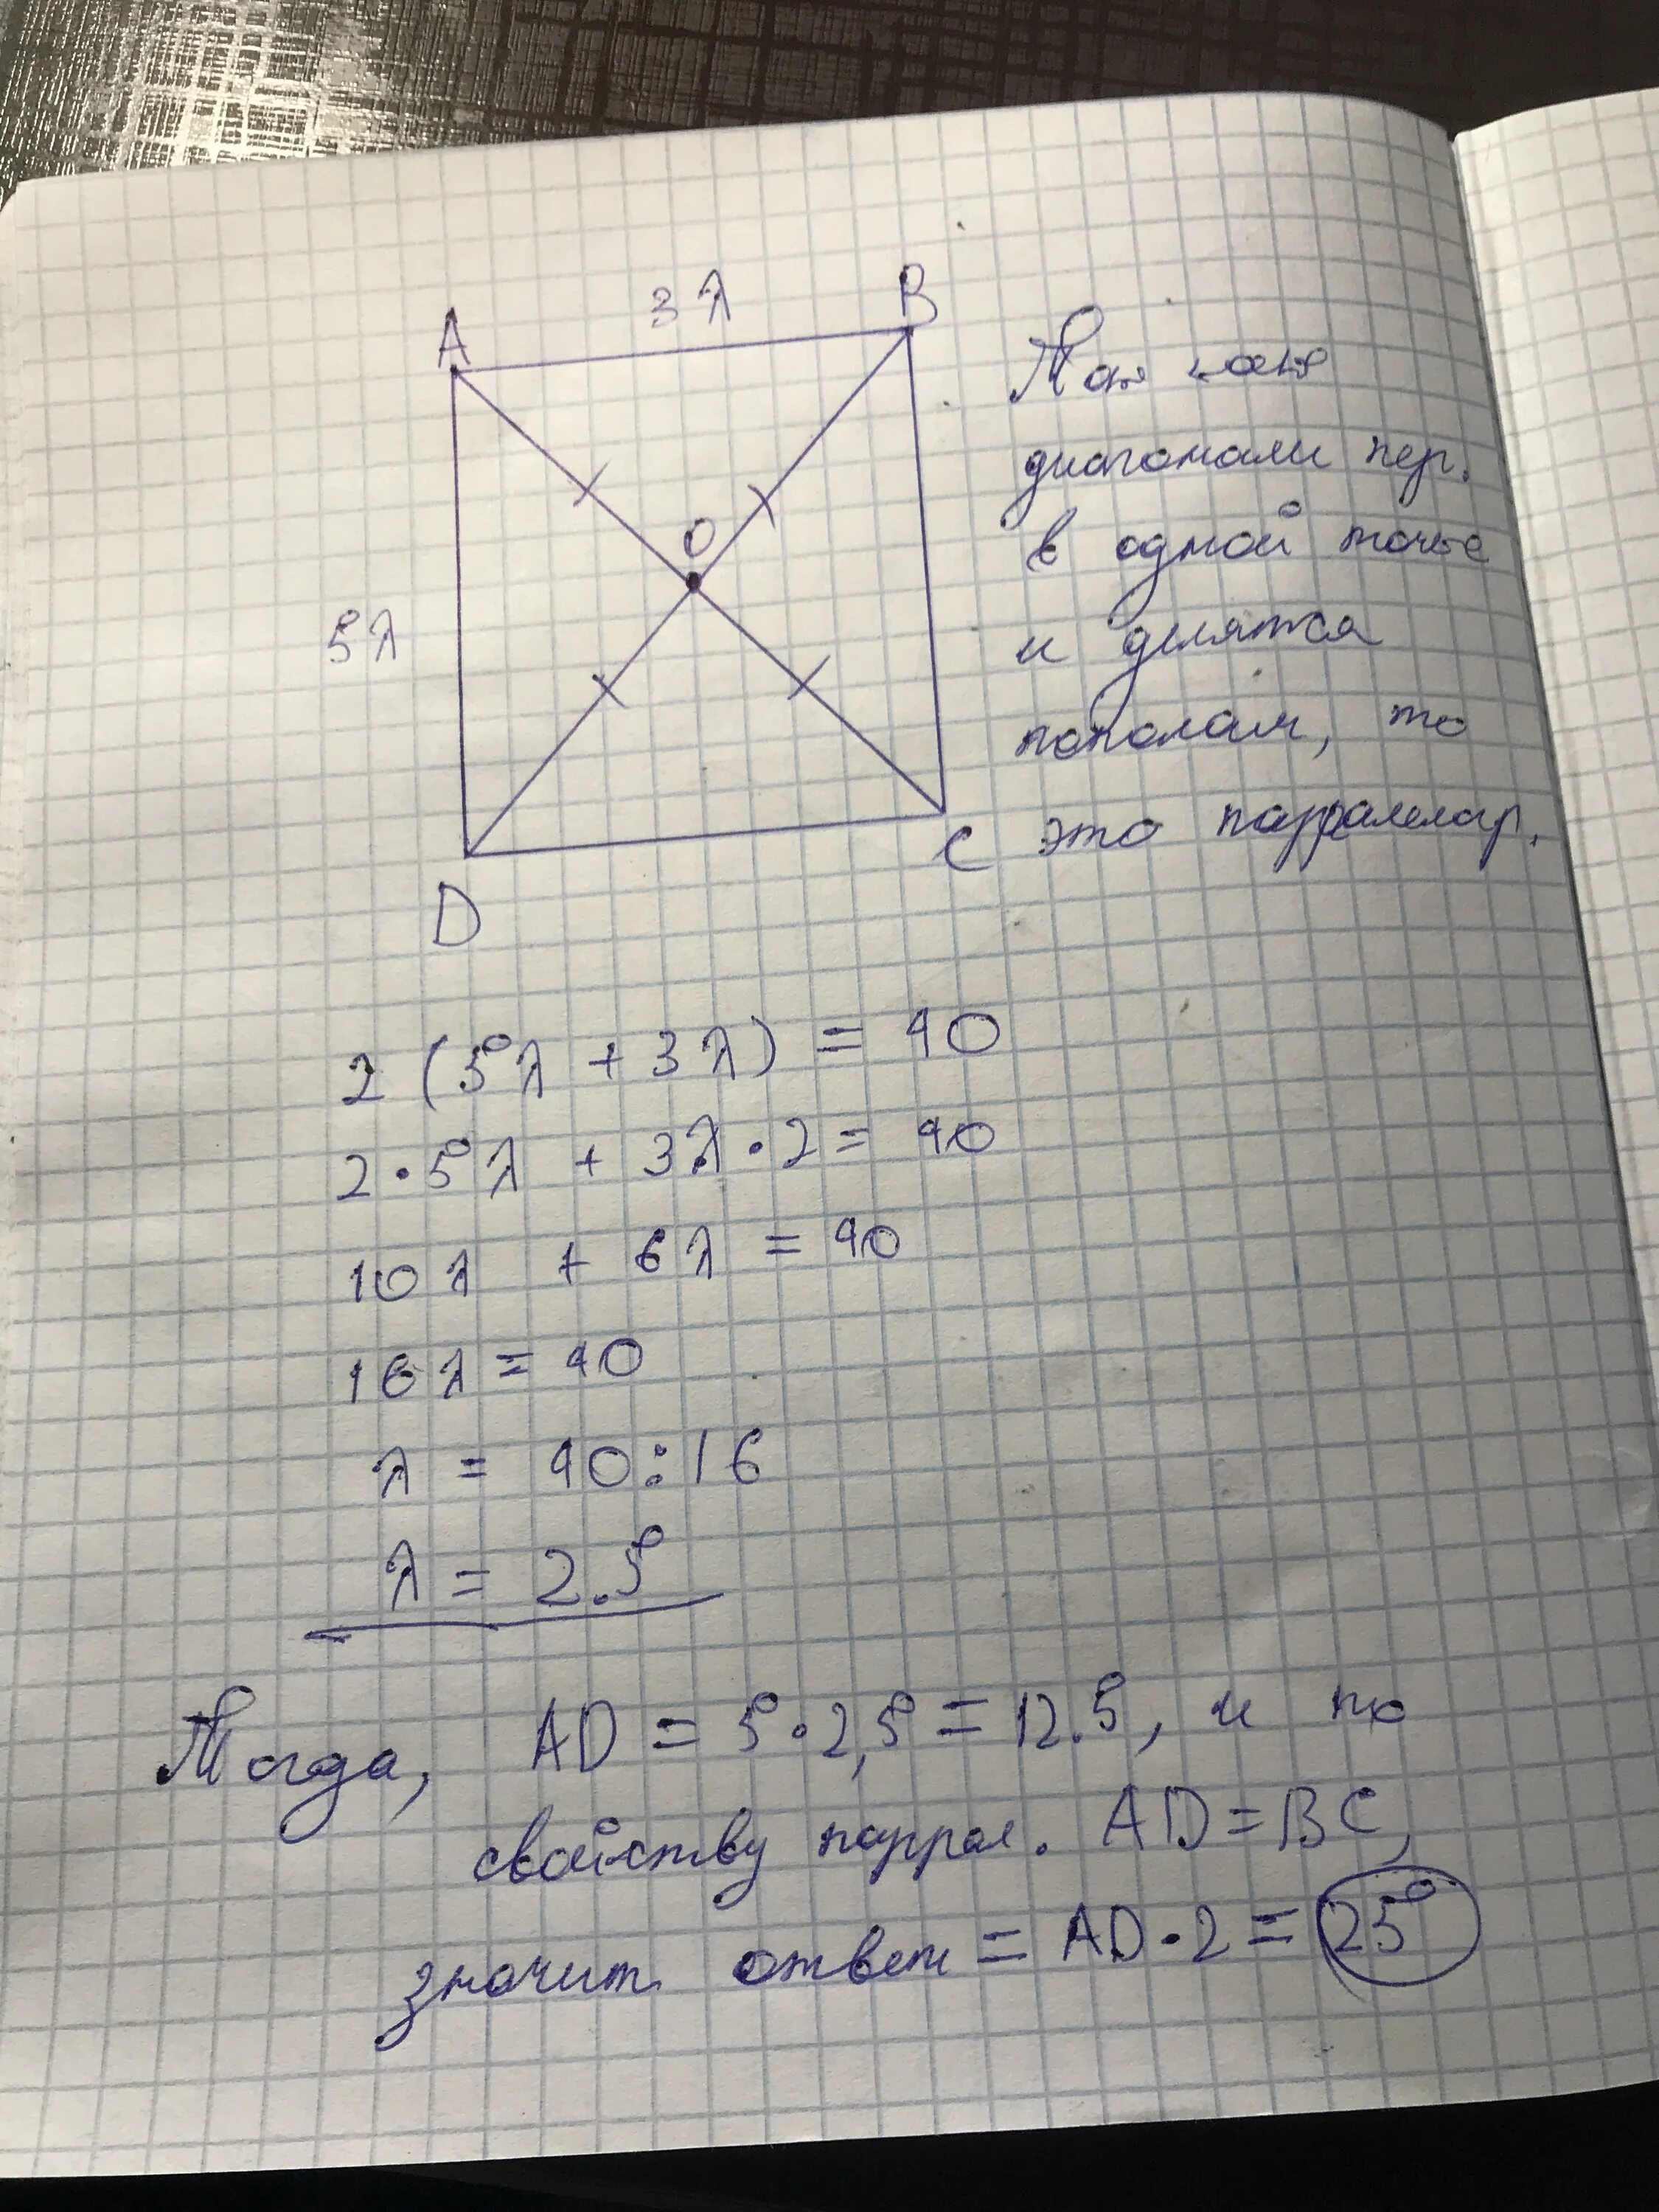 3λ
A
B
Так как
диагонали пер.
в одной точке
и делятся
пополам, то
это парралелар.
O
5λ
C
D
2 (5λ + 3λ) = 40
2 · 5λ + 3λ · 2 = 40
10λ + 6λ = 40
16λ = 40
λ = 40 : 16
λ = 2.5
Тогда, AD = 5 · 2,5 = 12.5, и по
свойству паррал. AD = BC,
значит ответ = AD · 2 = 25